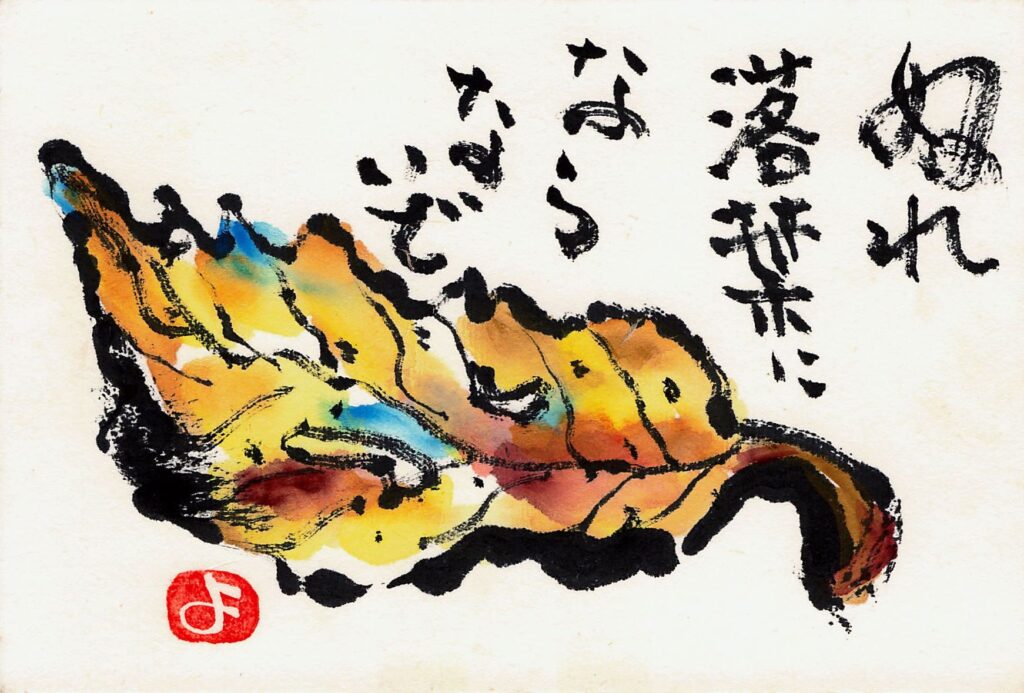 ぬれ
落葉に
なる
なな
いで
よ